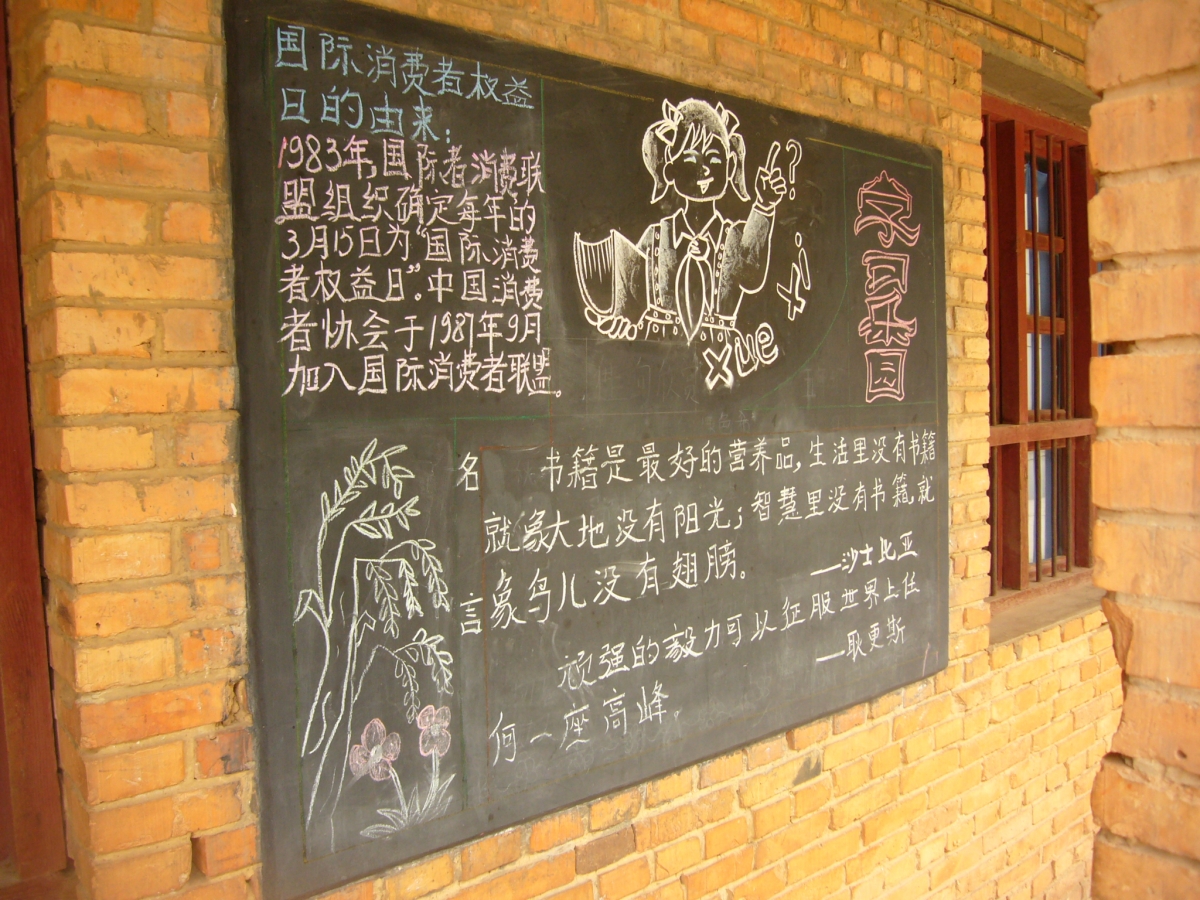 国际消费者权益
日的由来:
1983年,国际者消费联
盟组织确定每年的
3月15日为“国际消费
者权益日”.中国消费
者协会于1987年9月
加入国际消费者联盟。
?
xue
xi
学习乐园
名言
书籍是最好的营养品,生活里没有书籍
就象大地没有阳光;智慧里没有书籍,就
象鸟儿没有翅膀。
——沙士比亚
顽强的毅力可以征服世界上任
何一座高峰。
——耿更斯